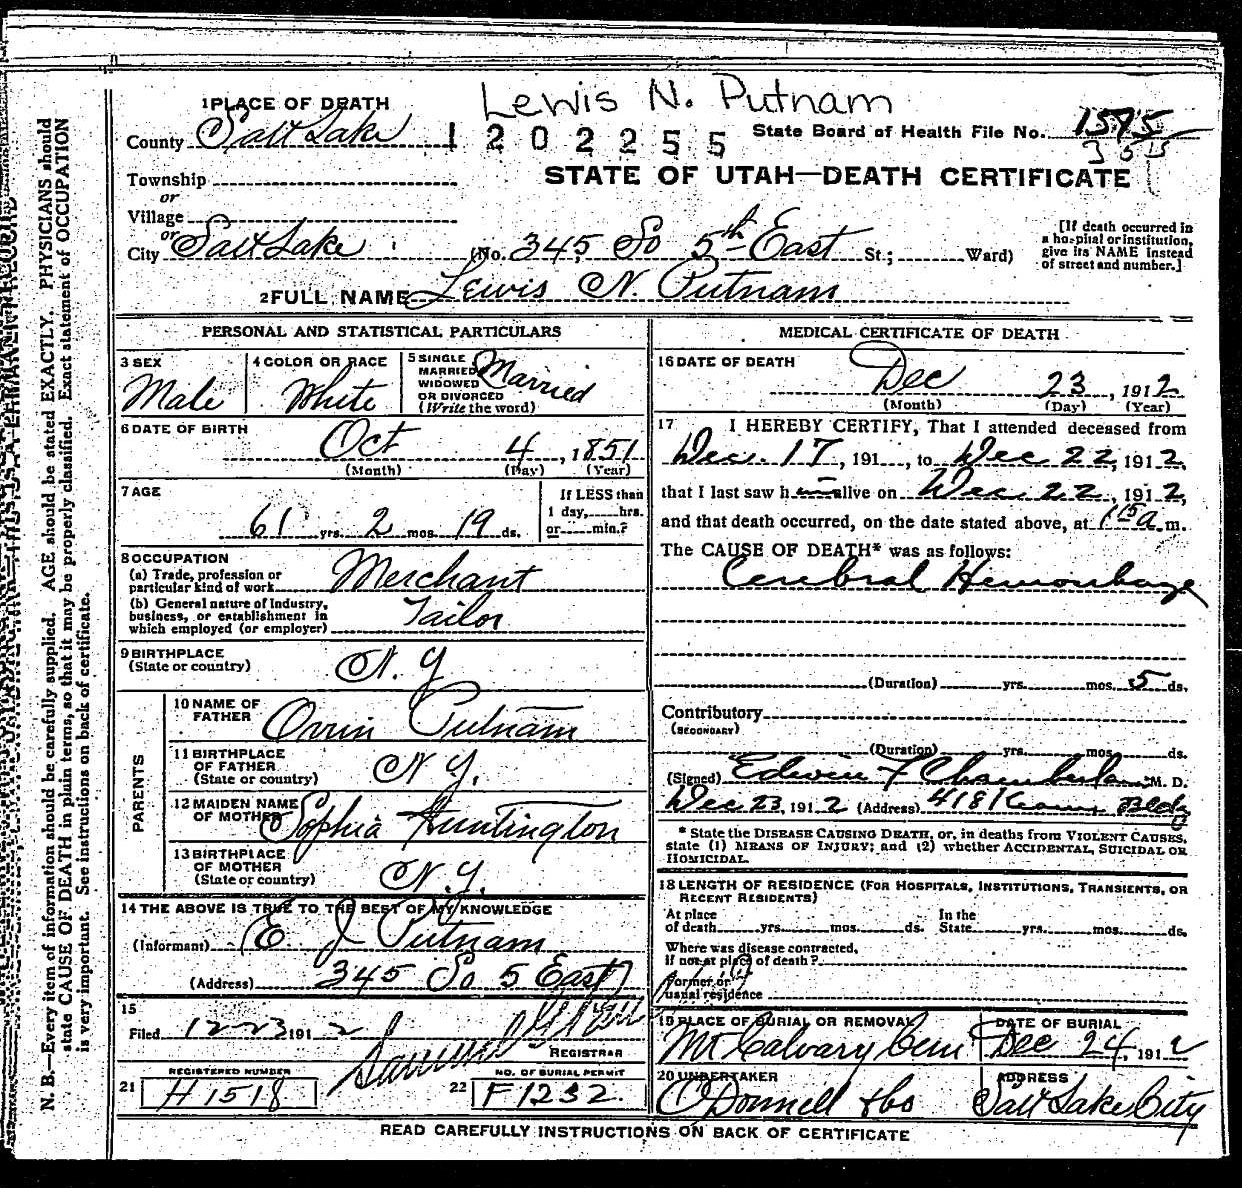 Lewis N. Putnam
1 PLACE OF DEATH
County Salt Lake
1 2 0 2 2 5 5
State Board of Health File No. 1595
STATE OF UTAH—DEATH CERTIFICATE
Township
or
Village
or
City Salt Lake (No. 345 So 5th East St.; Ward)
[If death occurred in
a hospital or institution,
give its NAME instead
of street and number.]
2 FULL NAME Lewis N. Putnam
PERSONAL AND STATISTICAL PARTICULARS
3 SEX
Male
4 COLOR OR RACE
White
5 SINGLE
MARRIED
WIDOWED
OR DIVORCED
(Write the word)
Married
6 DATE OF BIRTH
Oct 4, 1851
(Month) (Day) (Year)
7 AGE
61 yrs. 2 mos. 19 ds.
If LESS than
1 day, hrs.
or min.?
8 OCCUPATION
(a) Trade, profession or
particular kind of work Merchant
(b) General nature of Industry,
business, or establishment in
which employed (or employer) Tailor
9 BIRTHPLACE
(State or country) N. Y
PARENTS
10 NAME OF
FATHER Orrin Putnam
11 BIRTHPLACE
OF FATHER
(State or country) N Y.
12 MAIDEN NAME
OF MOTHER Sophia Huntington
13 BIRTHPLACE
OF MOTHER
(State or country) N. Y.
14 THE ABOVE IS TRUE TO THE BEST OF MY KNOWLEDGE
(Informant) E J Putnam
(Address) 345 So 5 East
15
Filed 12-23 1912
REGISTRAR
21 REGISTERED NUMBER
H 1518
22 NO. OF BURIAL PERMIT
F 1232.
MEDICAL CERTIFICATE OF DEATH
16 DATE OF DEATH
Dec 23, 1912
(Month) (Day) (Year)
17 I HEREBY CERTIFY, That I attended deceased from
Dec. 17, 191 , to Dec 22, 1912,
that I last saw h alive on Dec 22, 1912,
and that death occurred, on the date stated above, at 1 15 a. m.
The CAUSE OF DEATH* was as follows:
Cerebral Hemorrhage
(Duration) yrs. mos. 5 ds.
Contributory
(SECONDARY)
(Duration) yrs. mos. ds.
(Signed) Edwin F Chamberlain M. D.
Dec 23, 1912 (Address) 418 Kearns Bldg
* State the DISEASE CAUSING DEATH, or, in deaths from VIOLENT CAUSES,
state (1) MEANS OF INJURY; and (2) whether ACCIDENTAL, SUICIDAL OR
HOMICIDAL.
18 LENGTH OF RESIDENCE (FOR HOSPITALS, INSTITUTIONS, TRANSIENTS, OR
RECENT RESIDENTS)
At place
of death yrs. mos. ds.
In the
State yrs. mos. ds.
Where was disease contracted,
If not at place of death?
Former or
usual residence
19 PLACE OF BURIAL OR REMOVAL
Mt Calvary Cem
DATE OF BURIAL
Dec 24, 1912
20 UNDERTAKER
O'Donnell & Co
ADDRESS
Salt Lake City
READ CAREFULLY INSTRUCTIONS ON BACK OF CERTIFICATE
N. B.—Every item of information should be carefully supplied. AGE should be stated EXACTLY. PHYSICIANS should
state CAUSE OF DEATH in plain terms, so that it may be properly classified. Exact statement of OCCUPATION
is very important. See instructions on back of certificate.